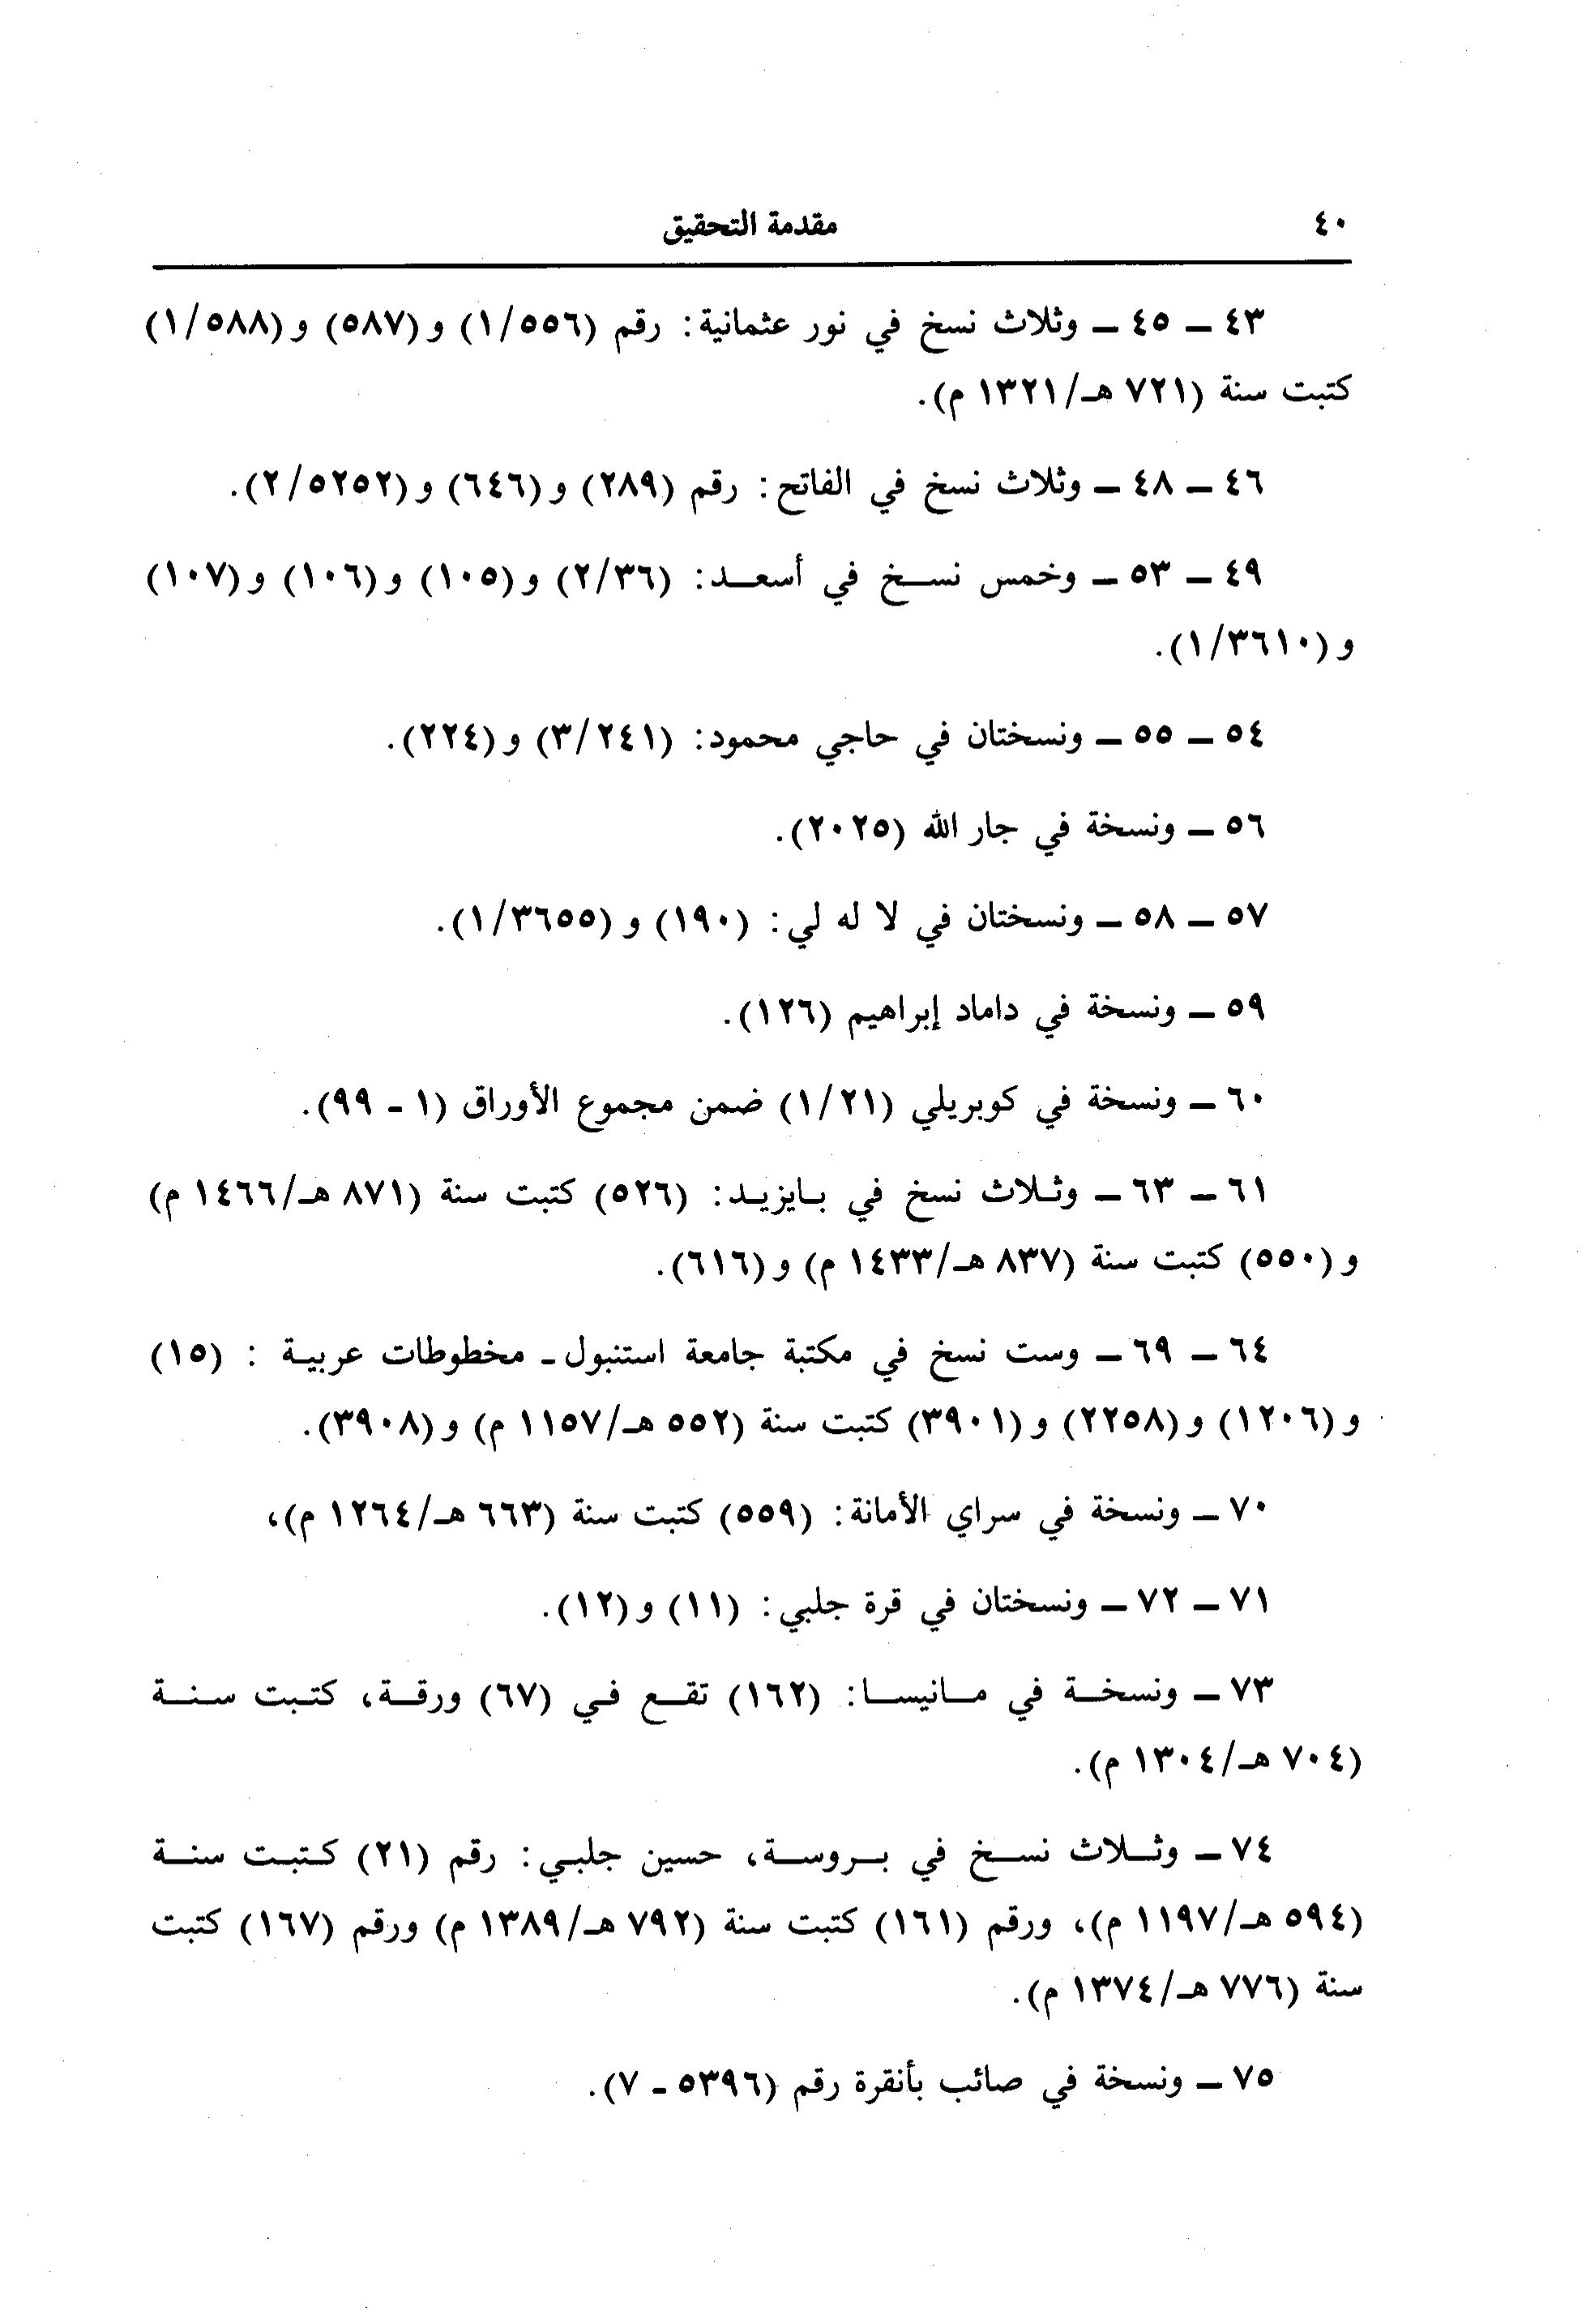 ٤٠ مقدمة التحقيق
٤٣ ـ ٤٥ ـ وثلاث نسخ في نور عثمانية: رقم (١/٥٥٦) و(٥٨٧) و(١/٥٨٨)
كتبت سنة (٧٢١ هـ/١٣٢١ م).
٤٦ ـ ٤٨ ـ وثلاث نسخ في الفاتح: رقم (٢٨٩) و(٦٤٦) و(٢/٥٢٥٢).
٤٩ ـ ٥٣ ـ وخمس نسخ في أسعد: (٢/٣٦) و(١٠٥) و(١٠٦) و(١٠٧)
و(١/٣٦١٠).
٥٤ ـ ٥٥ ـ ونسختان في حاجي محمود: (٣/٢٤١) و(٢٢٤).
٥٦ ـ ونسخة في جار الله (٢٠٢٥).
٥٧ ـ ٥٨ ـ ونسختان في لا له لي: (١٩٠) و(١/٣٦٥٥).
٥٩ ـ ونسخة في داماد إبراهيم (١٢٦).
٦٠ ـ ونسخة في كوبريلي (١/٢١) ضمن مجموع الأوراق (١ - ٩٩).
٦١ ـ ٦٣ ـ وثلاث نسخ في بايزيد: (٥٢٦) كتبت سنة (٨٧١ هـ/١٤٦٦ م)
و(٥٥٠) كتبت سنة (٨٣٧ هـ/١٤٣٣ م) و(٦١٦).
٦٤ ـ ٦٩ ـ وست نسخ في مكتبة جامعة استنبول - مخطوطات عربية : (١٥)
و(١٢٠٦) و(٢٢٥٨) و(٣٩٠١) كتبت سنة (٥٥٢ هـ/١١٥٧ م) و(٣٩٠٨).
٧٠ ـ ونسخة في سراي الأمانة: (٥٥٩) كتبت سنة (٦٦٣ هـ/١٢٦٤ م)،
٧١ ـ ٧٢ ـ ونسختان في قرة جلبي: (١١) و(١٢).
٧٣ ـ ونسخة في مانيسا: (١٦٢) تقع في (٦٧) ورقة، كتبت سنة
(٧٠٤ هـ/١٣٠٤ م).
٧٤ ـ وثلاث نسخ في بروسة، حسين جلبي: رقم (٢١) كتبت سنة
(٥٩٤ هـ/١١٩٧ م)، ورقم (١٦١) كتبت سنة (٧٩٢ هـ/١٣٨٩ م) ورقم (١٦٧) كتبت
سنة (٧٧٦ هـ/١٣٧٤ م).
٧٥ ـ ونسخة في صائب بأنقرة رقم (٥٣٩٦ - ٧).